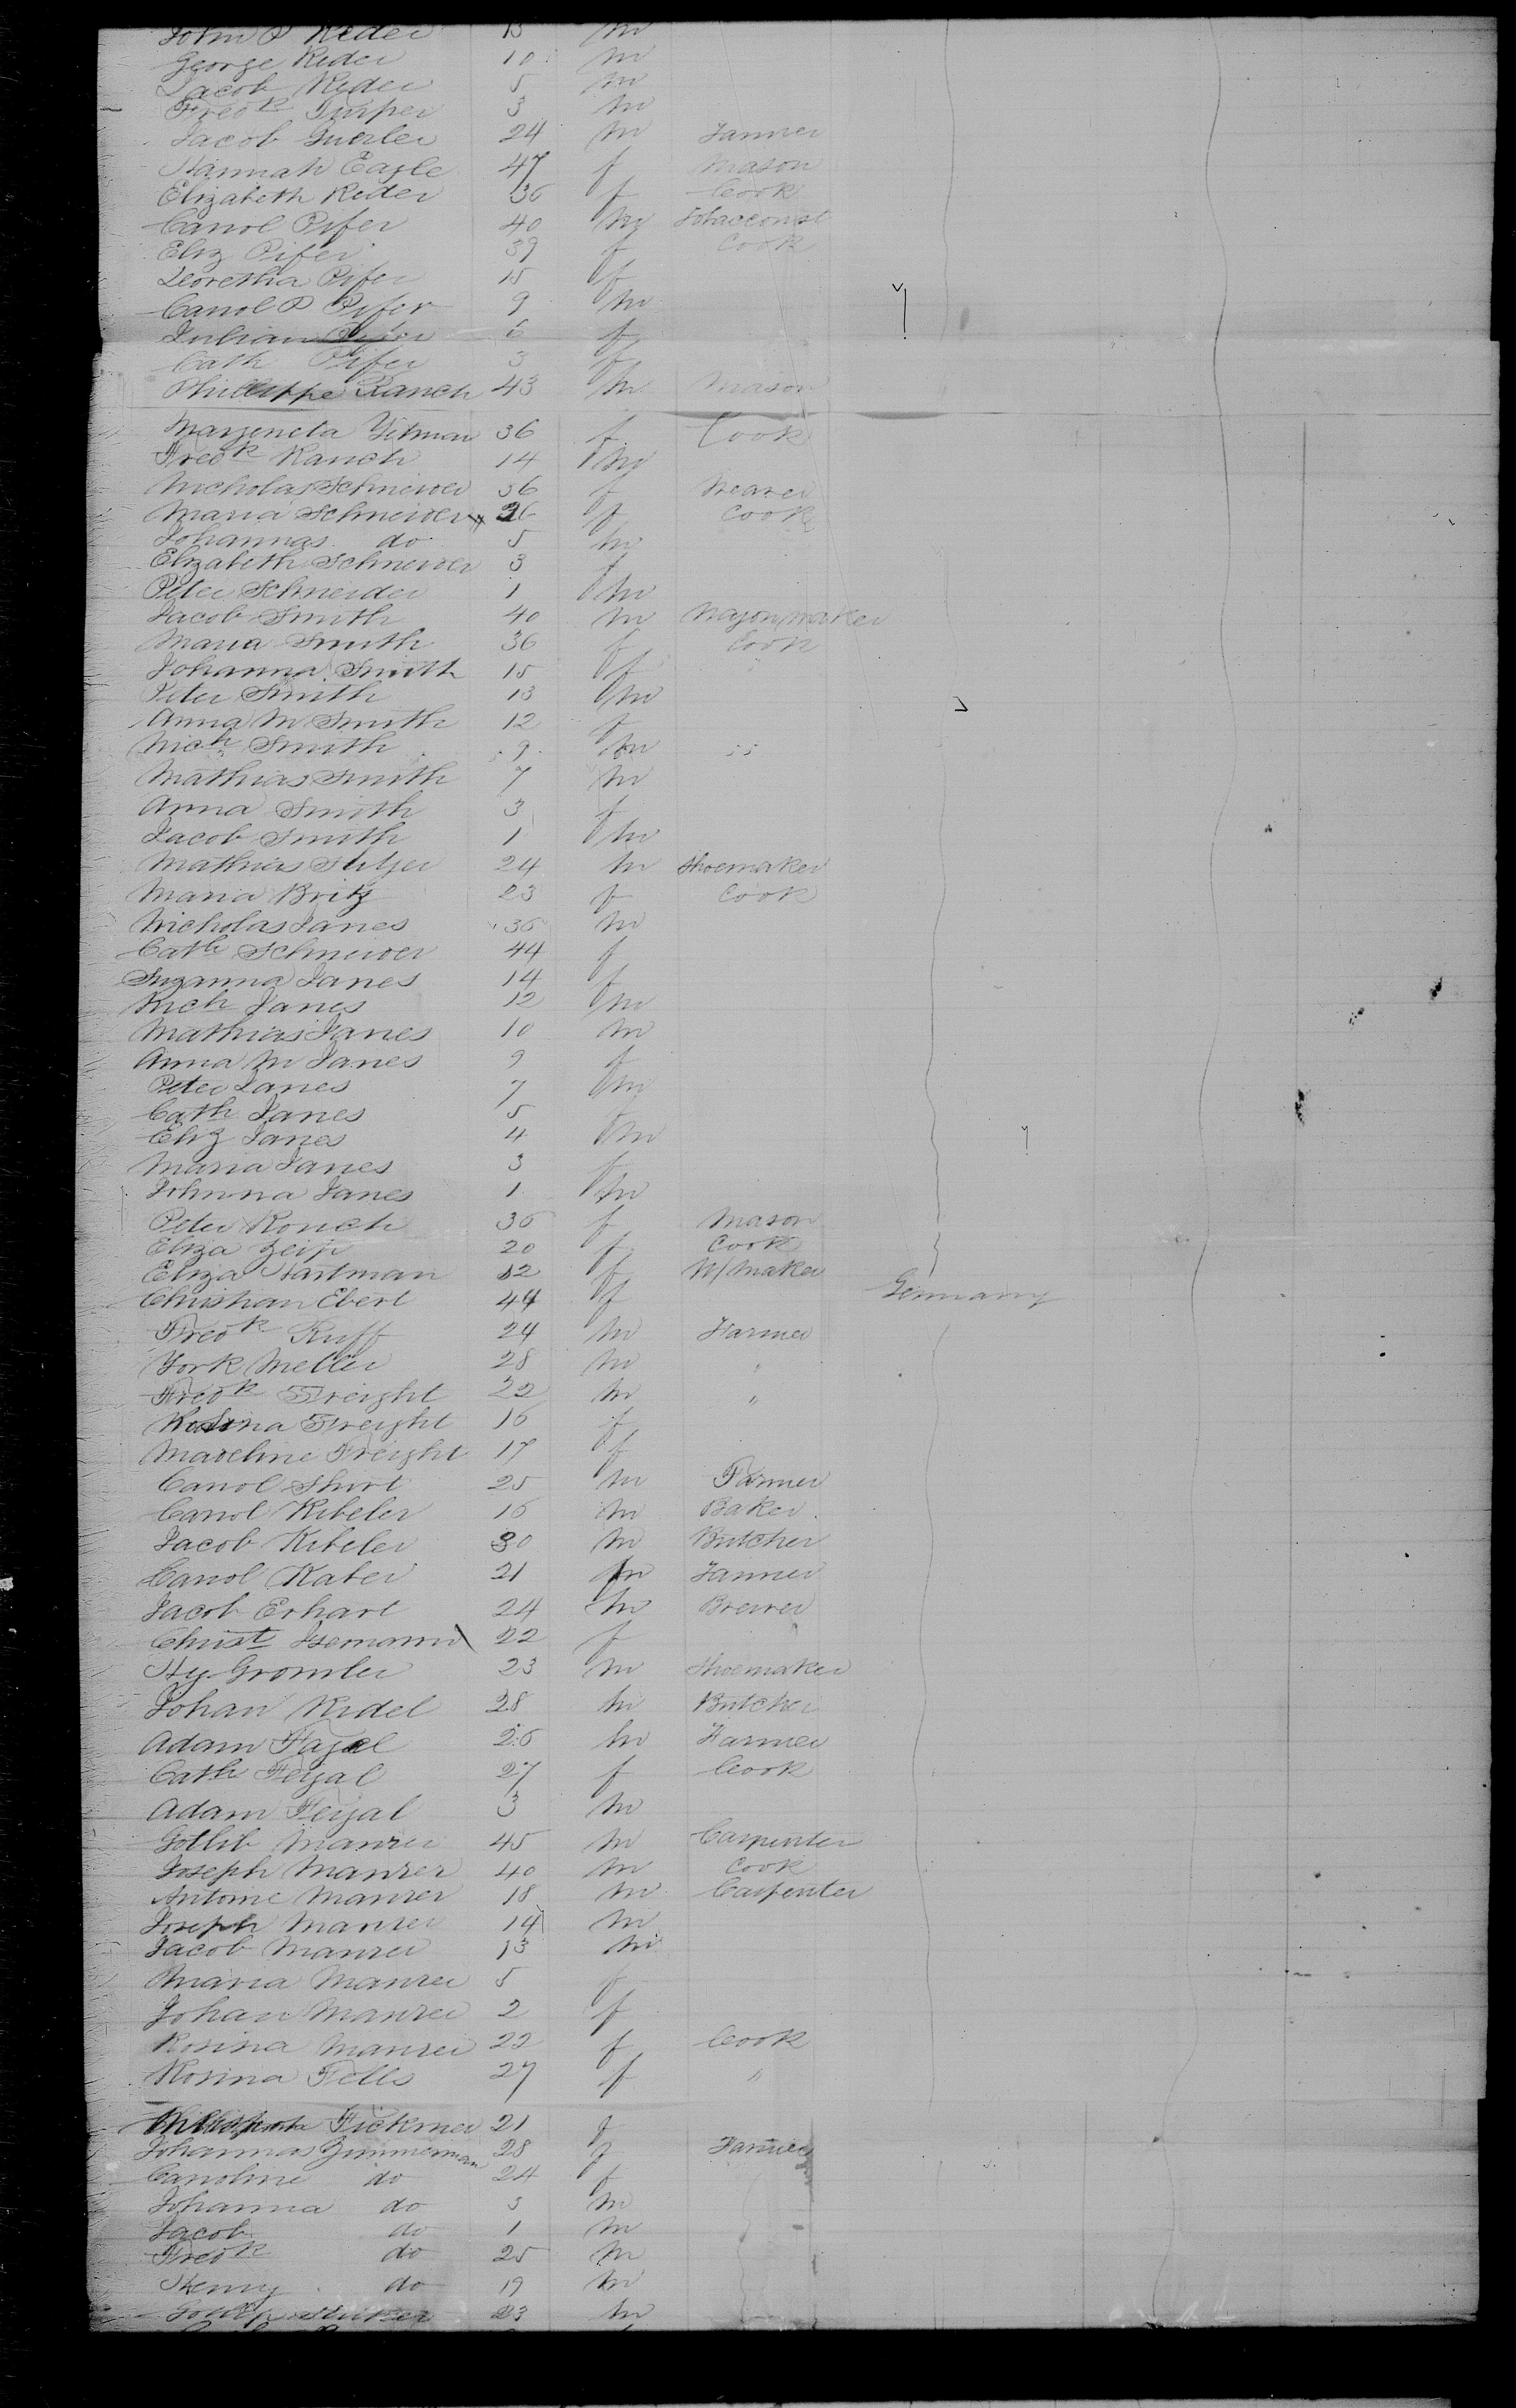 John P Reder 13 m
George Reder 10 m
Jacob Reder 5 m
Fredk 3 m
Jacob Guerler 24 m Tanner
Hannah Eagle 47 f Mason
Elizabeth Reder 36 f Cook
Carrol Pifer 40 m Tobacconist
Eliz Pifer 39 f Cook
Doretha Pifer 15 f
Carrol P Pifer 9 m
Julian Pifer 6 f
Cath Pifer 3 f
Phillippe Ranch 43 m Mason
Margeneta Yitman 36 f Cook
Fredk Ranch 14 m
Nicholas Schneider 36 f Weaver
Maria Schneider 36 f Cook
Johannas do 5 m
Elizabeth Schneider 3 f
Peter Schneider 1 m
Jacob Smith 40 m Wagonmaker
Maria Smith 36 f Cook
Johanna Smith 15 f "
Peter Smith 13 m
Anna M Smith 12 f
Nich Smith 9 m
Mathias Smith 7 m
Anna Smith 3 f
Jacob Smith 1 m
Mathias 24 m Shoemaker
Maria Britz 23 f Cook
Nicholas Janes 36 m
Cath Schneider 44 f
Suzanna Janes 14 f
Nich Janes 12 m
Mathias Janes 10 m
Anna M Janes 9 f
Peter Janes 7 m
Cath Janes 5 f
Eliz Janes 4 m
Maria Janes 3 f
Johnna Janes 1 m
Peter Ronch 36 f Mason
Eliza Zeip 20 f Cook
Eliza Hartman 32 f W/Maker
Christian Ebert 44 f Germany
Fredk Ruff 24 m Farmer
York Meller 28 m "
Fredk Freight 22 m "
Rosina Freight 16 f
Madeline Freight 17 f
Carrol Short 25 m Farmer
Carrol Kibeler 16 m Baker
Jacob Kibeler 30 m Butcher
Carrol Kater 21 m Tanner
Jacob Erhart 24 m Brewer
Christ Isemann 22 f
Hy Gromler 23 m Shoemaker
Johan Ridel 28 m Butcher
Adam Fagal 26 m Farmer
Cath Feyal 27 f Cook
Adam Feyal 3 m
Gotlib Manrer 45 m Carpenter
Joseph Manrer 40 m Cook
Antome Manrer 18 m Carpenter
Joseph Manrer 14 m
Jacob Manrer 13 m
Maria Manrer 5 f
Johan Manrer 2 f
Rosina Manrer 22 f Cook
Rosina Fells 27 f "
Fickmer 21 f
Johannas Zimmerman 28 f Farmer
Caroline do 24 f
Johanna do 3 m
Jacob do 1 m
Fredk do 25 m
Henry do 19 m
23 m